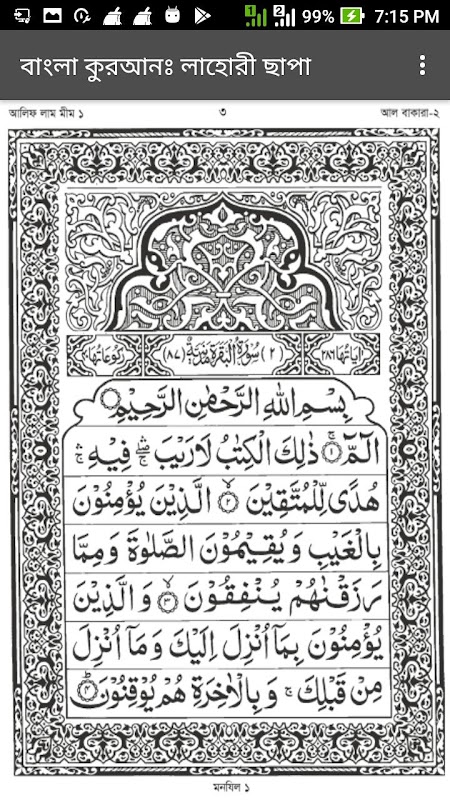 99% 7:15 PM
বাংলা কুরআনঃ লাহোরী ছাপা
আলিফ লাম মীম ১ ৩ আল বাকারা-২
اٰیَاتُهَا ٢٨٦ (٢) سُوْرَةُ الْبَقَرَةِ مَدَنِیَّةٌ (٨٧) رُكُوْعَاتُهَا
بِسْمِ اللّٰهِ الرَّحْمٰنِ الرَّحِیْمِ
الٓمّٓ ۚ ١ ذٰلِكَ الْكِتٰبُ لَا رَیْبَ ۛۖ فِیْهِ ۛۚ
هُدًی لِّلْمُتَّقِیْنَ ۙ ٢ الَّذِیْنَ یُؤْمِنُوْنَ
بِالْغَیْبِ وَیُقِیْمُوْنَ الصَّلٰوةَ وَمِمَّا
رَزَقْنٰهُمْ یُنْفِقُوْنَ ۙ ٣ وَالَّذِیْنَ
یُؤْمِنُوْنَ بِمَاۤ اُنْزِلَ اِلَیْكَ وَمَاۤ اُنْزِلَ
مِنْ قَبْلِكَ ۚ وَبِالْاٰخِرَةِ هُمْ یُوْقِنُوْنَ ؕ ٤
মনযিল ১